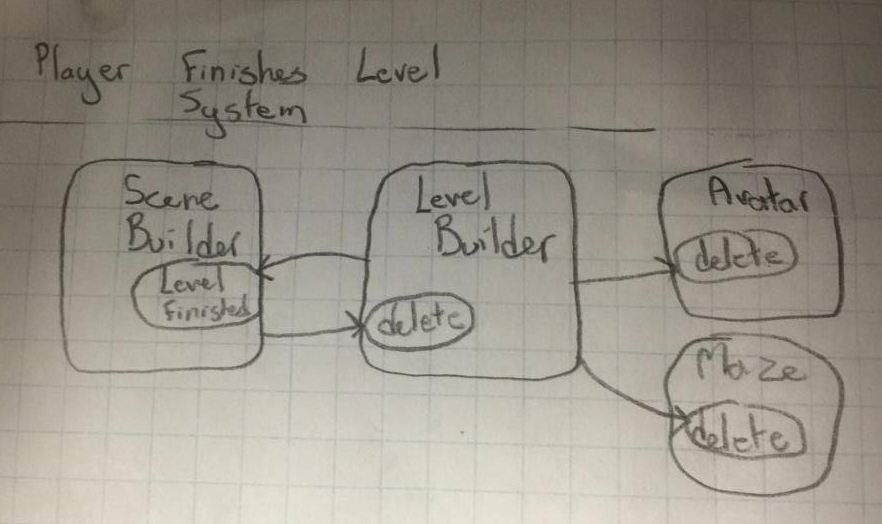 Player Finishes Level
System
Scene
Builder
Level
finished
Level
Builder
delete
Avatar
delete
Maze
delete